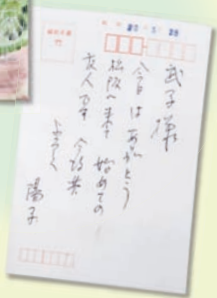 武子様
今日はありがとう
松阪へ来て始めての
友人です 今後共
よろしく
陽子